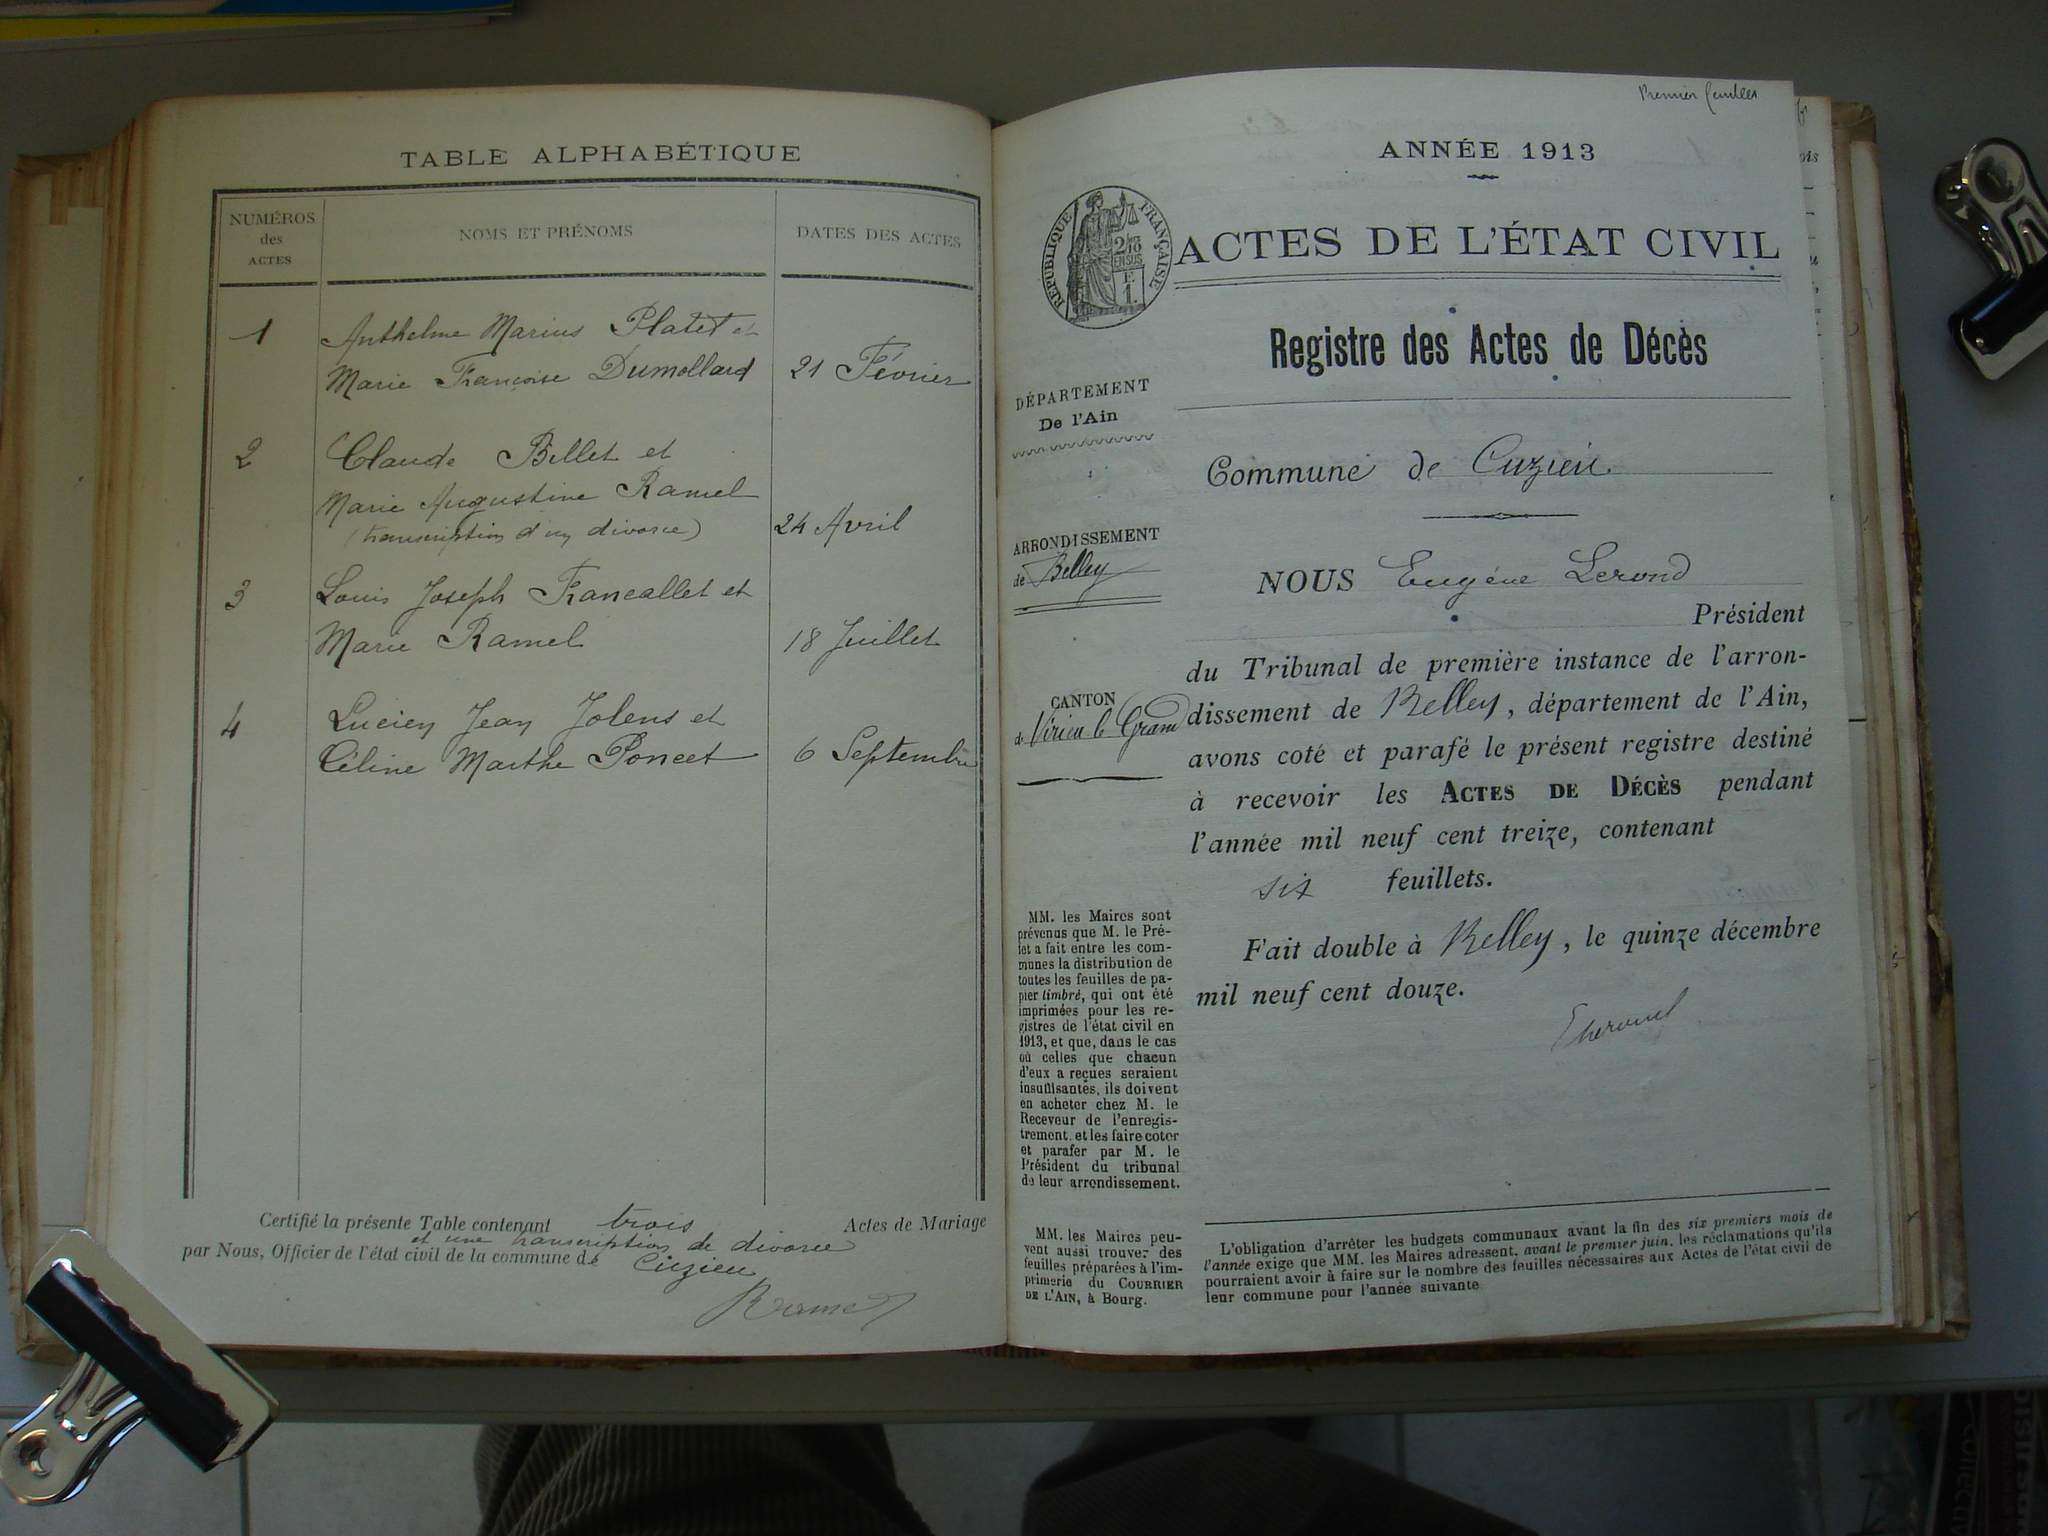 TABLE ALPHABÉTIQUE
NUMÉROS
des
ACTES
NOMS ET PRÉNOMS
DATES DES ACTES
1
Anthelme Marius Platet et
Marie Françoise Dumollard
21 Février
2
Claude Billet et
Marie Augustine Ramel
(transcription d'un divorce)
24 Avril
3
Louis Joseph Francallet et
Marie Ramel
18 Juillet
4
Lucien Jean Jolens et
Céline Marthe Poncet
6 Septembre
Certifié la présente Table contenant trois Actes de Mariage
et une transcription de divorce
par Nous, Officier de l'état civil de la commune de Cuzieu
Premier feuillet
ANNÉE 1913
RÉPUBLIQUE FRANÇAISE
ACTES DE L'ÉTAT CIVIL
Registre des Actes de Décès
DÉPARTEMENT
De l'Ain
Commune de Cuzieu
ARRONDISSEMENT
de Belley
NOUS Eugène Lerond
Président
du Tribunal de première instance de l'arron-
dissement de Belley, département de l'Ain,
avons coté et parafé le présent registre destiné
à recevoir les ACTES DE DÉCÈS pendant
l'année mil neuf cent treize, contenant
six feuillets.
Fait double à Belley, le quinze décembre
mil neuf cent douze.
CANTON
de Virieu le Grand
MM. les Maires sont
prévenus que M. le Pré-
fet a fait entre les com-
munes la distribution de
toutes les feuilles de pa-
pier timbré, qui ont été
imprimées pour les re-
gistres de l'état civil en
1913, et que, dans le cas
où celles que chacun
d'eux a reçues seraient
insuffisantes, ils doivent
en acheter chez M. le
Receveur de l'enregis-
trement, et les faire coter
et parafer par M. le
Président du tribunal
de leur arrondissement.
MM. les Maires peu-
vent aussi trouver des
feuilles préparées à l'im-
primerie du COURRIER
DE L'AIN, à Bourg.
L'obligation d'arrêter les budgets communaux avant la fin des six premiers mois de
l'année exige que MM. les Maires adressent, avant le premier juin, les réclamations qu'ils
pourraient avoir à faire sur le nombre des feuilles nécessaires aux Actes de l'état civil de
leur commune pour l'année suivante